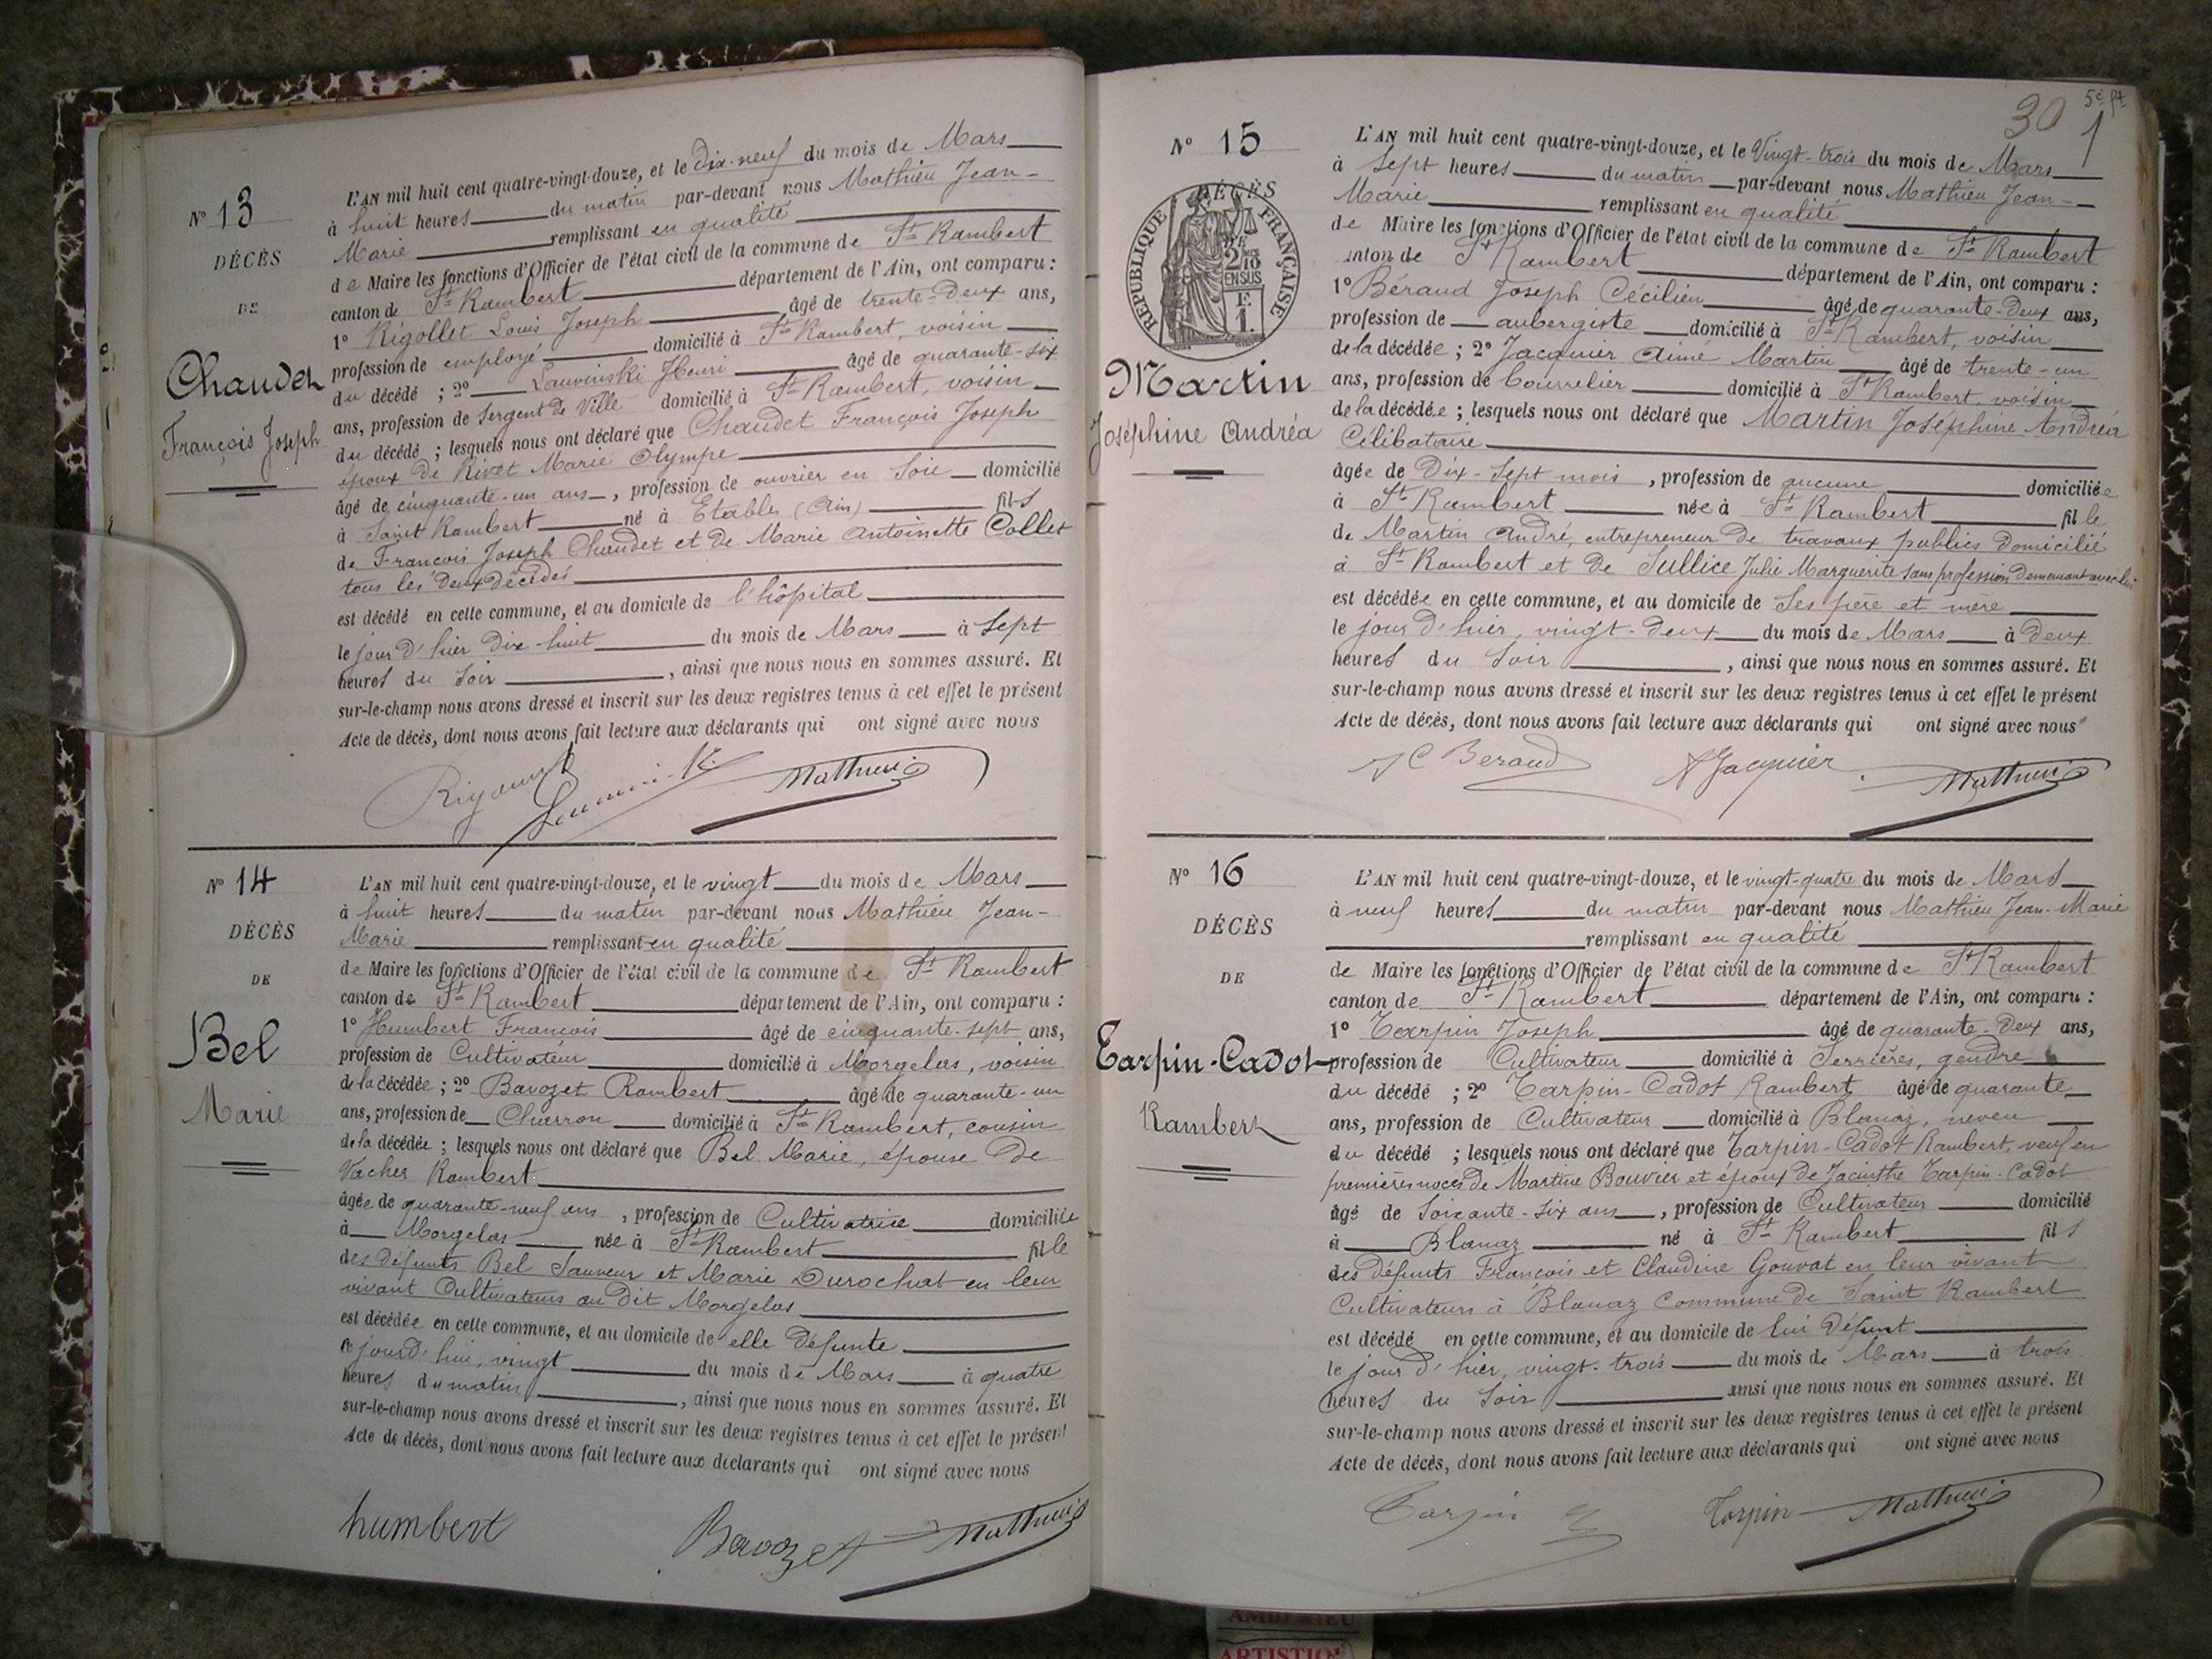 N° 13
DÉCÈS
DE
Chaudet
François Joseph
L'AN mil huit cent quatre-vingt-douze, et le Dix-neuf du mois de Mars
à huit heures du matin par-devant nous Mathieu Jean-
Marie remplissant en qualité
de Maire les fonctions d'Officier de l'état civil de la commune de St Rambert
canton de St Rambert département de l'Ain, ont comparu :
1° Rigollet Louis Joseph âgé de trente-Deux ans,
profession de employé domicilié à St Rambert, voisin
du décédé ; 2° Lauvinski Henri âgé de quarante-six
ans, profession de Sergent de Ville domicilié à St Rambert, voisin
du décédé ; lesquels nous ont déclaré que Chaudet François Joseph
époux de Rivet Marie Olympe
âgé de cinquante-un ans, profession de ouvrier en Soie domicilié
à Saint Rambert né à Etables (Ain) fils
de François Joseph Chaudet et de Marie Antoinette Collet
tous les deux décédés
est décédé en cette commune, et au domicile de l'hôpital
le jour d'hier Dix-huit du mois de Mars à Sept
heures du Soir, ainsi que nous nous en sommes assuré. Et
sur-le-champ nous avons dressé et inscrit sur les deux registres tenus à cet effet le présent
Acte de décès, dont nous avons fait lecture aux déclarants qui ont signé avec nous
Mathieu
N° 14
DÉCÈS
DE
Bel
Marie
L'AN mil huit cent quatre-vingt-douze, et le vingt du mois de Mars
à huit heures du matin par-devant nous Mathieu Jean-
Marie remplissant en qualité
de Maire les fonctions d'Officier de l'état civil de la commune de St Rambert
canton de St Rambert département de l'Ain, ont comparu :
1° Humbert François âgé de cinquante-sept ans,
profession de Cultivateur domicilié à Morgelas, voisin
de la décédée ; 2° Bavozet Rambert âgé de quarante-un
ans, profession de Charron domicilié à St Rambert, cousin
de la décédée ; lesquels nous ont déclaré que Bel Marie, épouse De
Vacher Rambert
âgée de quarante-neuf ans, profession de Cultivatrice domiciliée
à Morgelas née à St Rambert fille
des défunts Bel Sauveur et Marie Durochat en leur
vivant Cultivateurs au Dit Morgelas
est décédée en cette commune, et au domicile de elle défunte
ce jourd'hui, vingt du mois de Mars à quatre
heures du matin, ainsi que nous nous en sommes assuré. Et
sur-le-champ nous avons dressé et inscrit sur les deux registres tenus à cet effet le présent
Acte de décès, dont nous avons fait lecture aux déclarants qui ont signé avec nous
humbert Bavozet Mathieu
30
N° 15
DÉCÈS
RÉPUBLIQUE FRANÇAISE
2/10 EN SUS
F. 1.
Martin
Joséphine Andréa
L'AN mil huit cent quatre-vingt-douze, et le Vingt-trois du mois de Mars
à Sept heures du matin par-devant nous Mathieu Jean-
Marie remplissant en qualité
de Maire les fonctions d'Officier de l'état civil de la commune de St Rambert
canton de St Rambert département de l'Ain, ont comparu :
1° Béraud Joseph Cécilien âgé de quarante-Deux ans,
profession de aubergiste domicilié à St Rambert, voisin
de la décédée ; 2° Jacquier Aimé Martin âgé de trente-un
ans, profession de bourrelier domicilié à St Rambert, voisin
de la décédée ; lesquels nous ont déclaré que Martin Joséphine Andréa
Célibataire
âgée de Dix-Sept mois, profession de aucune domiciliée
à St Rambert née à St Rambert fille
de Martin André, entrepreneur de travaux publics Domicilié
à St Rambert et de Sullice Julie Marguerite sans profession demeurant avec lui
est décédée en cette commune, et au domicile de Ses père et mère
le jour d'hier, vingt-deux du mois de Mars à Deux
heures du Soir, ainsi que nous nous en sommes assuré. Et
sur-le-champ nous avons dressé et inscrit sur les deux registres tenus à cet effet le présent
Acte de décès, dont nous avons fait lecture aux déclarants qui ont signé avec nous
JC Beraud A Jacquier Mathieu
N° 16
DÉCÈS
DE
Tarpin-Cadot
Rambert
L'AN mil huit cent quatre-vingt-douze, et le vingt-quatre du mois de Mars
à neuf heures du matin par-devant nous Mathieu Jean-Marie
remplissant en qualité
de Maire les fonctions d'Officier de l'état civil de la commune de St Rambert
canton de St Rambert département de l'Ain, ont comparu :
1° Tarpin Joseph âgé de quarante-Deux ans,
profession de Cultivateur domicilié à Serrières, gendre
du décédé ; 2° Tarpin-Cadot Rambert âgé de quarante
ans, profession de Cultivateur domicilié à Blanaz, neveu
du décédé ; lesquels nous ont déclaré que Tarpin-Cadot Rambert, veuf en
premières noces de Martine Bouvier et époux de Jacinthe Tarpin-Cadot
âgé de Soixante-Six ans, profession de Cultivateur domicilié
à Blanaz né à St Rambert fils
des défunts François et Claudine Gouvat en leur vivant
Cultivateurs à Blanaz Commune de Saint Rambert
est décédé en cette commune, et au domicile de lui Défunt
le jour d'hier, vingt-trois du mois de Mars à trois
heures du Soir ainsi que nous nous en sommes assuré. Et
sur-le-champ nous avons dressé et inscrit sur les deux registres tenus à cet effet le présent
Acte de décès, dont nous avons fait lecture aux déclarants qui ont signé avec nous
Tarpin Tarpin Mathieu